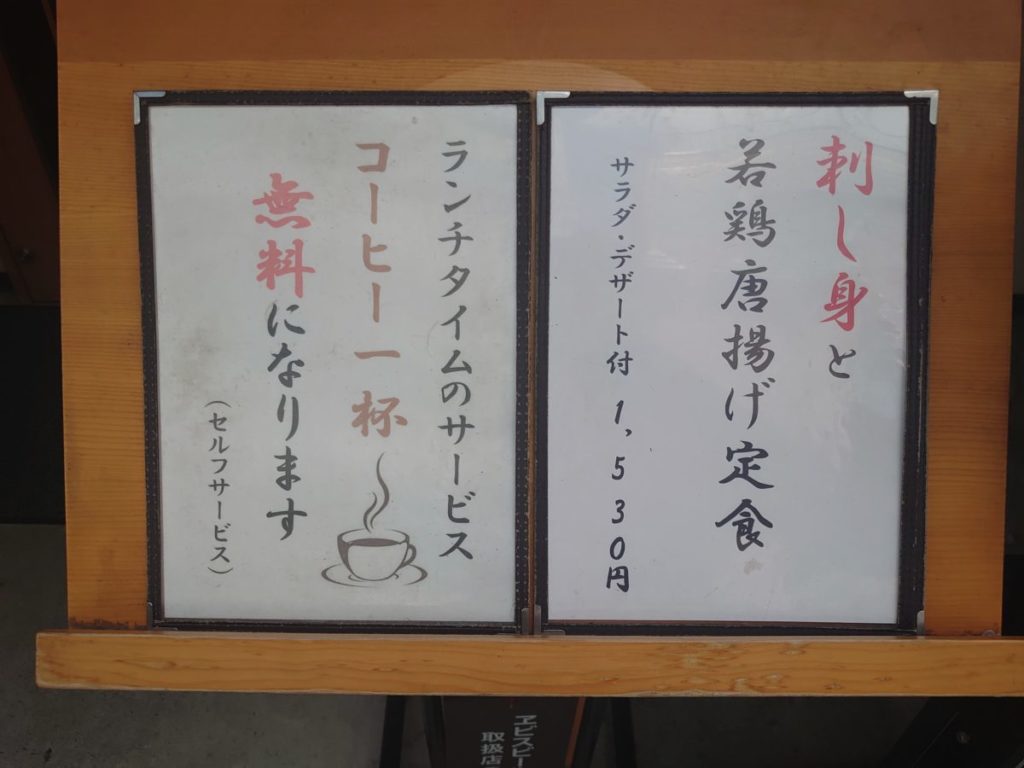 刺し身と
若鶏唐揚げ定食
サラダ・デザート付 1,530円
ランチタイムのサービス
コーヒー一杯
無料になります
（セルフサービス）
ヱビスビー
取扱店